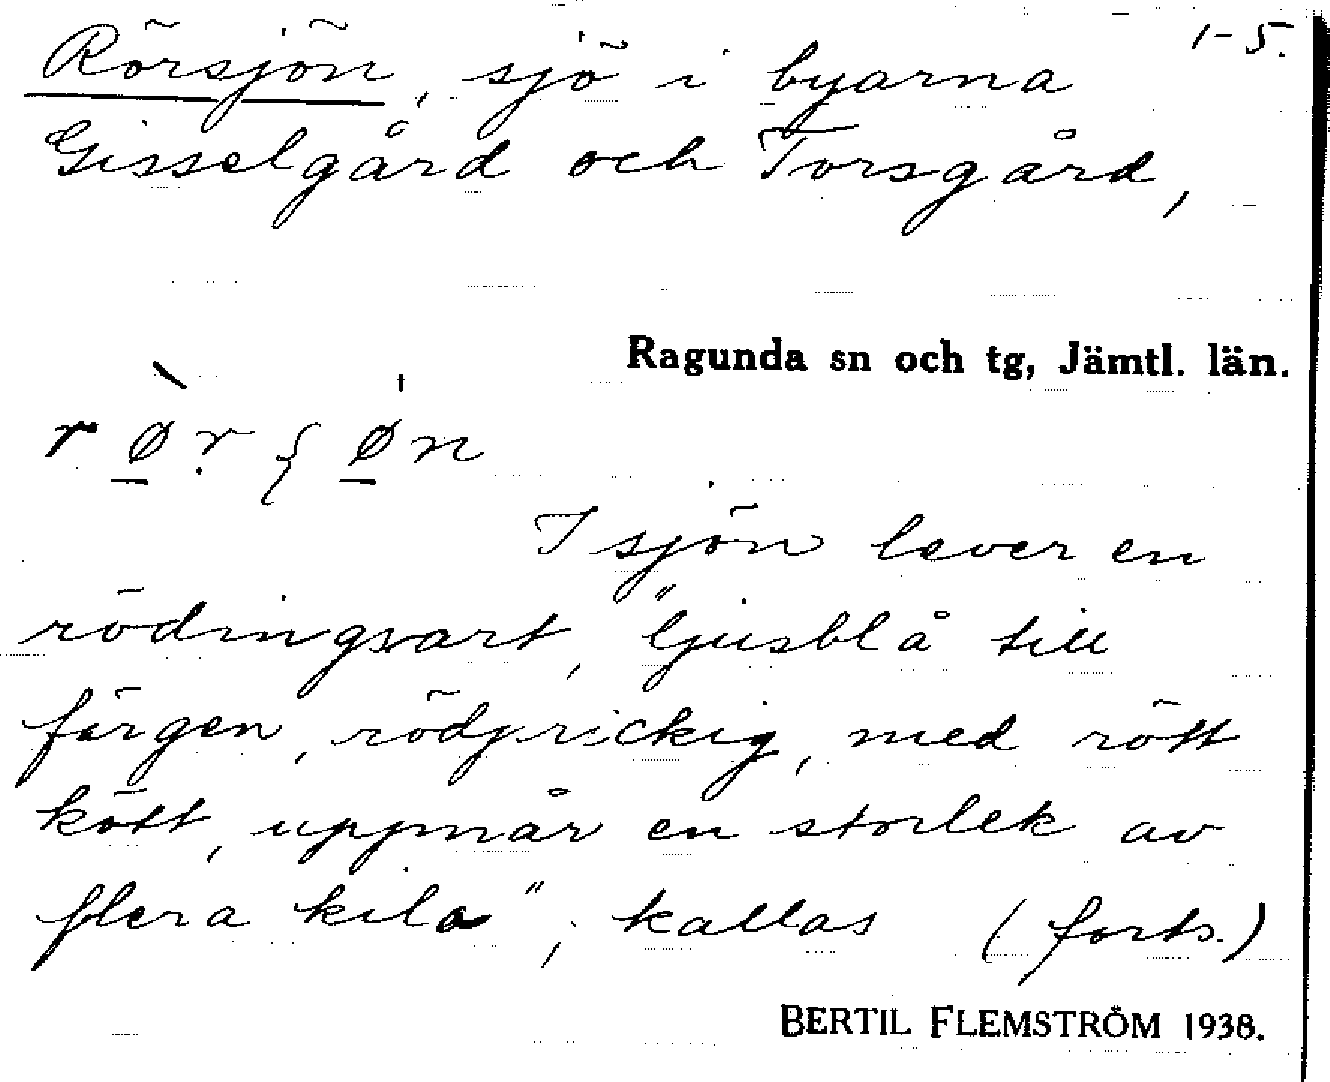 1-5.
Rörsjön, sjö i byarna
Gisselgård och Torsgård,
Ragunda sn och tg, Jämtl. län.
I sjön lever en
rödingsart, "ljusblå till
färgen, rödprickig, med rött
kött, uppnår en storlek av
flera kilo", kallas (forts.)
BERTIL FLEMSTRÖM 1938.